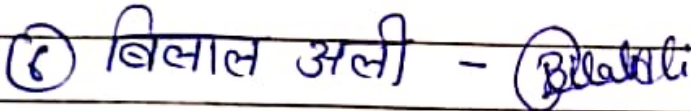 ⑥ बिलाल अली - Bilal Ali